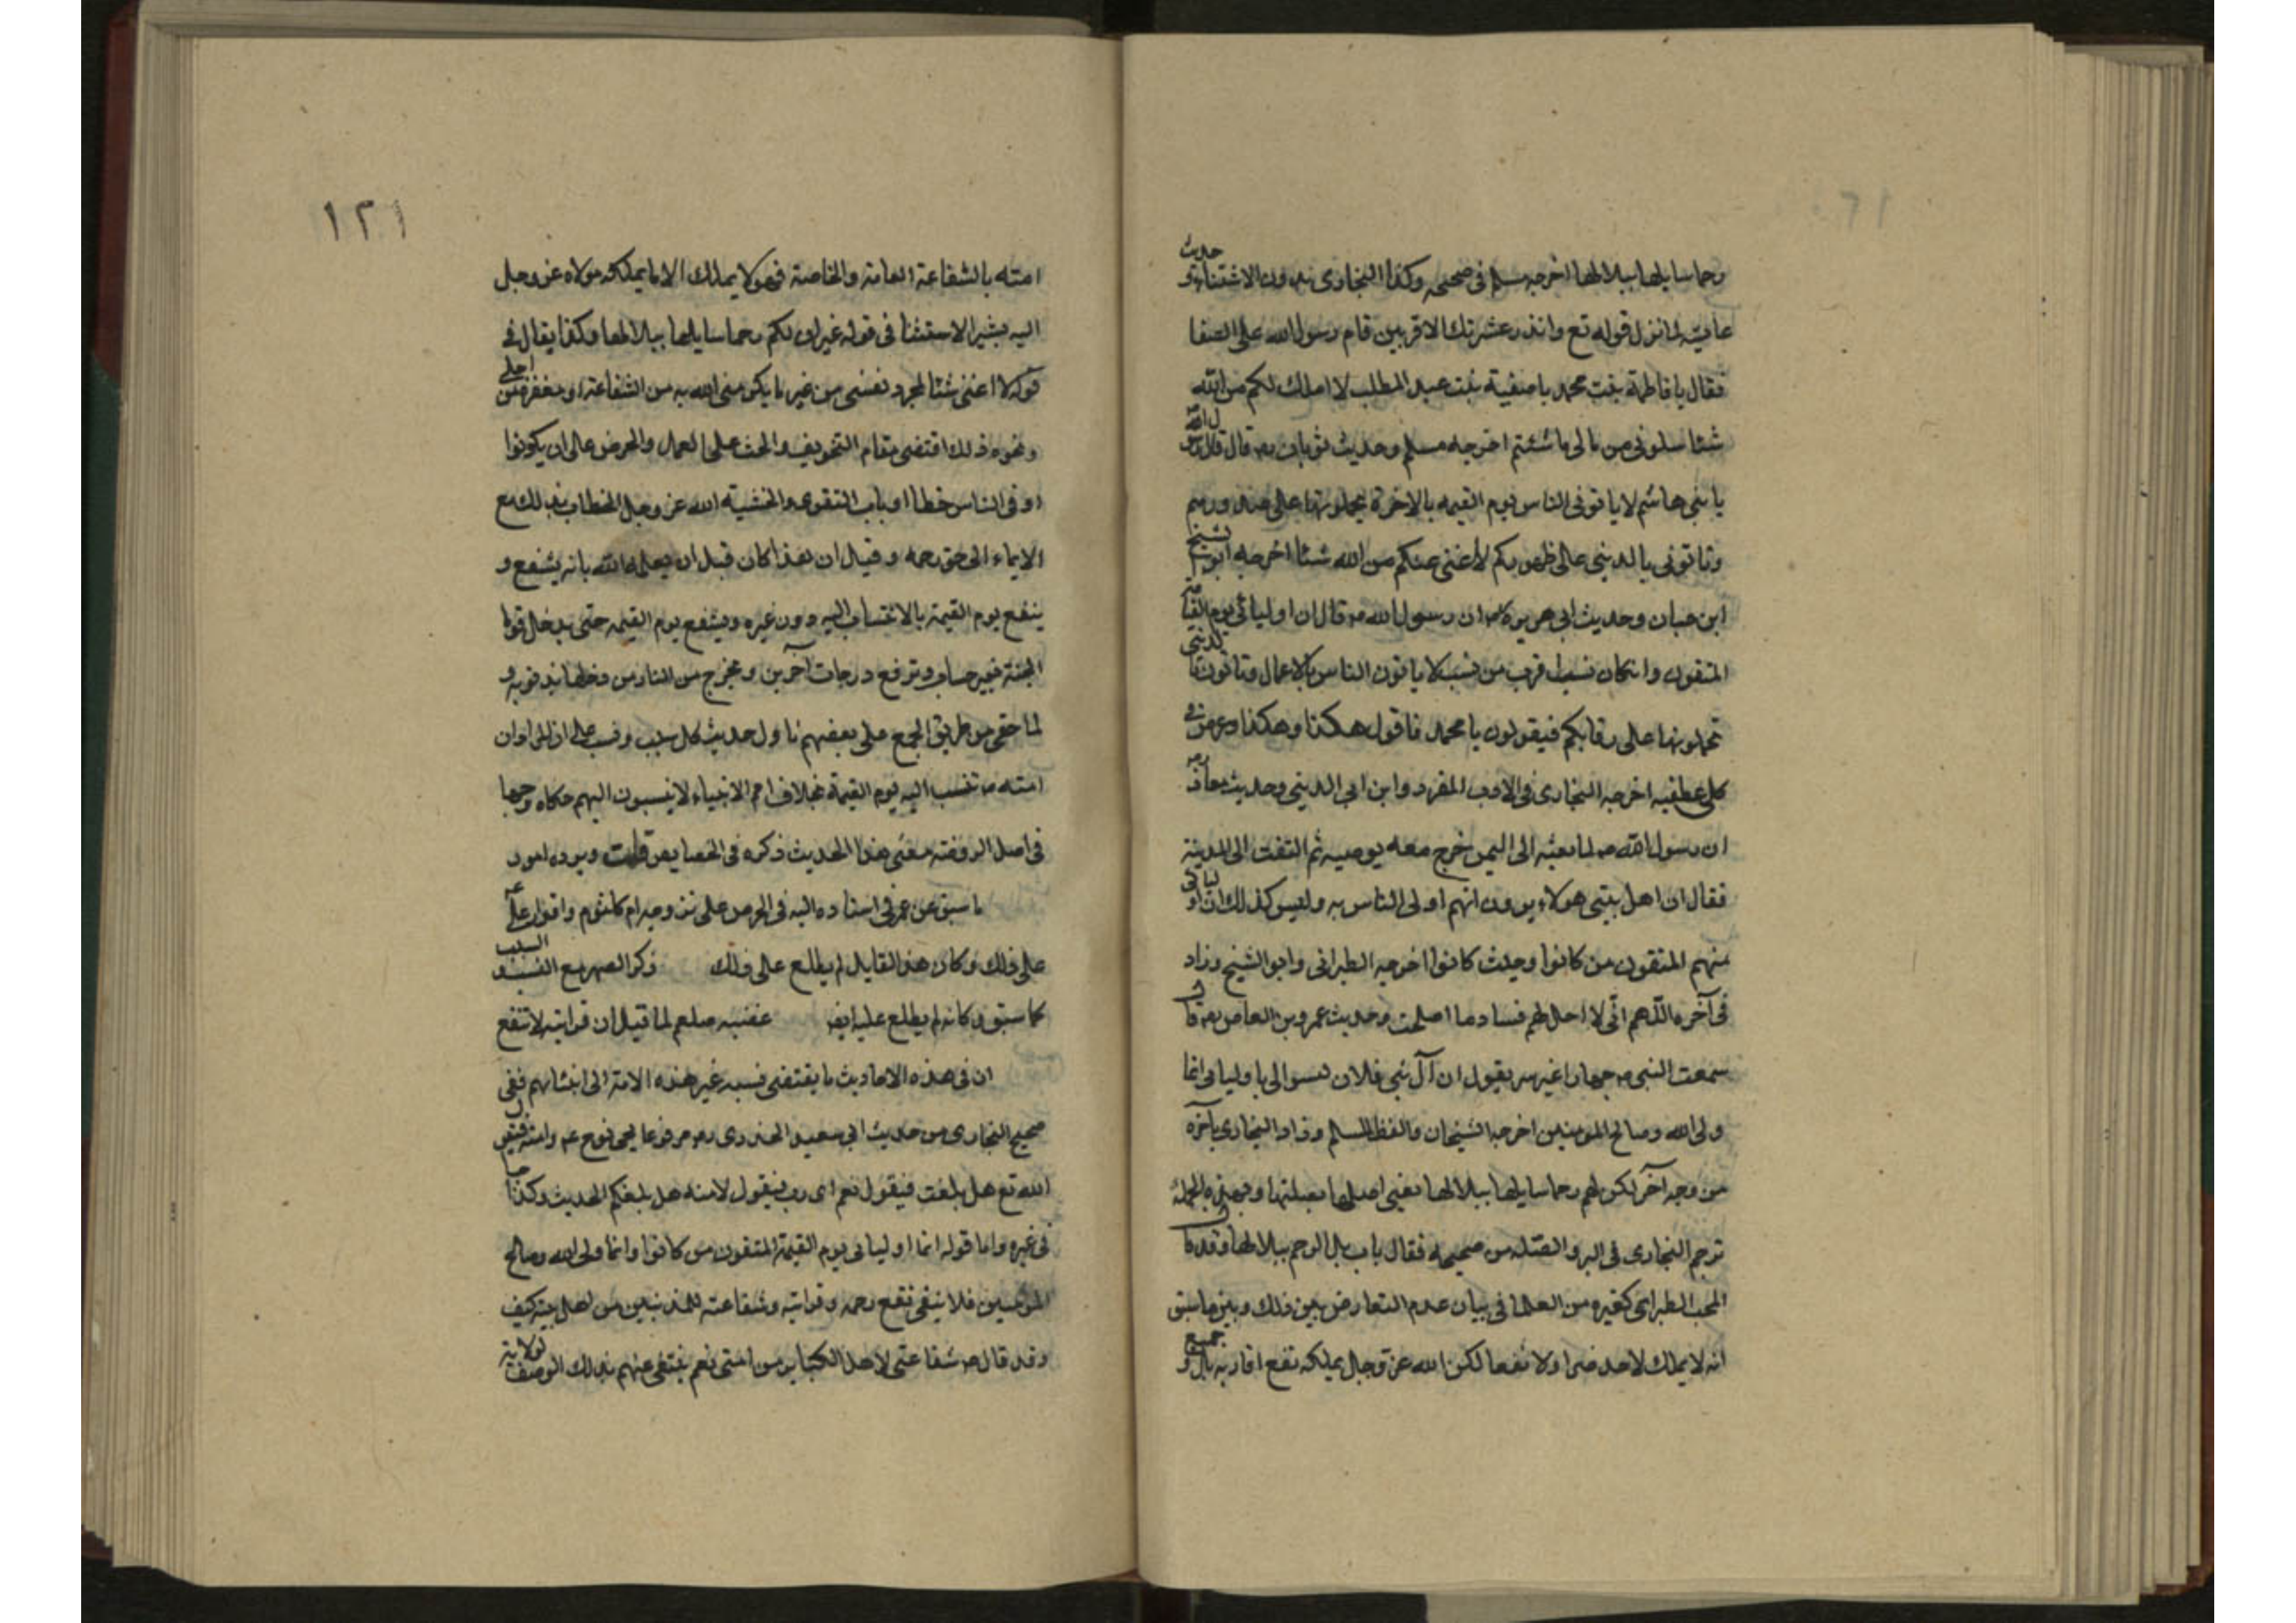 رحما سابلها ببلالها اخرجه مسلم فى صحيحه وكذا البخارى بدون الاستثناء و حديث
عايشه لما نزل قوله تع وانذر عشيرتك الاقربين قام رسول الله على الصفا
فقال يا فاطمة بنت محمد يا صفية بنت عبد المطلب لا املك لكم من الله
شئا سلونى من مالى ما شئتم اخرجه مسلم وحديث ثوبان رضه قال قال رسول الله
يا بنى هاشم لا ياتونى الناس يوم القيمه بالاخرة يحملونها على صدورهم
وتاتونى بالدينى على ظهوركم لا اغنى عنكم من الله شئا اخرجه ابو الشيخ
ابن حبان وحديث ابى هريرة رضه ان رسول الله صه قال ان اوليائى يوم القيمه
المتقون وانكان نسب اقرب من نسب لا ياتون الناس بالاعمال وتاتون بالدينى
تحملونها على رقابكم فيقولون يا محمد فاقول هكذا وهكذا وعرض فى
كلى عطفيه اخرجه البخارى فى الادب المفرد وابن ابى الدينى وحديث معاذ رضه
ان رسول الله صه لما بعثه الى اليمن خرج معه يوصيه ثم التفت الى المدينة
فقال ان اهل بيتى هولاء يرون انهم اولى الناس به وليس كذلك ان اوليائى
منهم المتقون من كانوا وحيث كانوا اخرجه الطبرانى وابو الشيخ وزاد
فى آخره اللهم انى لا احل لهم فساد ما اصلحت وحديث عمرو بن العاص رضه قال
سمعت النبى صه جهارا غير سر يقول ان آل بنى فلان ليسوا لى باوليائى انما
ولى الله وصالح المومنين اخرجه الشيخان واللفظ للمسلم وزاد البخارى بآخره
من وجه آخر لكن لهم رحما سابلها ببلالها يعنى اصلها بصلتها وبهذه الجملة
ترجم البخارى فى البر والصله من صحيحه فقال باب بل الرحم ببلالها وقد قال
المحب الطبرى كغيره من العلما فى بيان عدم التعارض بين ذلك وبين ما سبق
انه لا يملك لاحد ضرا ولا نفعا لكن الله عز وجل يملكه نفع اقاربه بل و جميع
١٢١
امته بالشفاعة العامة والخاصة فهو لا يملك الا ما يملكه مولاه عز وجل
اليه يشير الاستثنا فى قوله غير ان لكم رحما سابلها ببلالها وكذا يقال فى
قوله لا اغنى شئا لمجرد نفسى من غير ما يكرمنى الله به من الشفاعة او مغفرة من اجلى
ونحوه ذلك اقتضى مقام التخويف والحث على العمل والحرص على ان يكونوا
اوفى الناس حظا او باب التقوى والخشية الله عز وجل الخطاب بذلك مع
الايماء الى حق رحمه وقيل ان هذا كان قبل ان يعلمه الله بانه يشفع و
ينفع يوم القيمة بالانتساب اليه دون غيره ويشفع يوم القيمه حتى يدخل قوما
الجنة بغير حساب وترفع درجات آخرين ويخرج من النار من دخلها بذنوبه و
لما خفى من طريق الجمع على بعضهم تاول حديث كل سبب ونسب على ان المراد ان
امته صه تنسب اليه يوم القيمة بخلاف امم الانبياء لا ينسبون اليهم حكاه وجها
فى اصل الروضة معنى هذا الحديث ذكره فى الخصايص قلت ويرده امور
ما سبق عن عمر فى استناده اليه فى الحرص على تزوجه ام كلثوم واقرار على عه
على ذلك وكان هذا القايل لم يطلع على ذلك ذكر الصهر مع النسب و السبب
كما سبق وكانه لم يطلع عليه ايض غضبه صلعم لما قيل ان قرابته لا تنفع
ان فى هذه الاحاديث ما يقتضى نسبه غير هذه الامة الى انبيائهم ففى
صحيح البخارى من حديث ابى سعيد الخدرى رضه مرفوعا يجى نوح عه وامته فيقول
الله تع هل بلغت فيقول نعم اى رب فيقول لامته هل بلغكم الحديث وكذا جا
فى غيره واما قوله انما اوليائى يوم القيمة المتقون من كانوا وانما ولى الله وصالح
المومنين فلا ينفى نفع رحمه وقرابته وشفاعته للمذنبين من اهل بيته كيف
وقد قال صه شفاعتى لاهل الكبائر من امتى نعم ينتفى عنهم بذلك الوصف الولاية